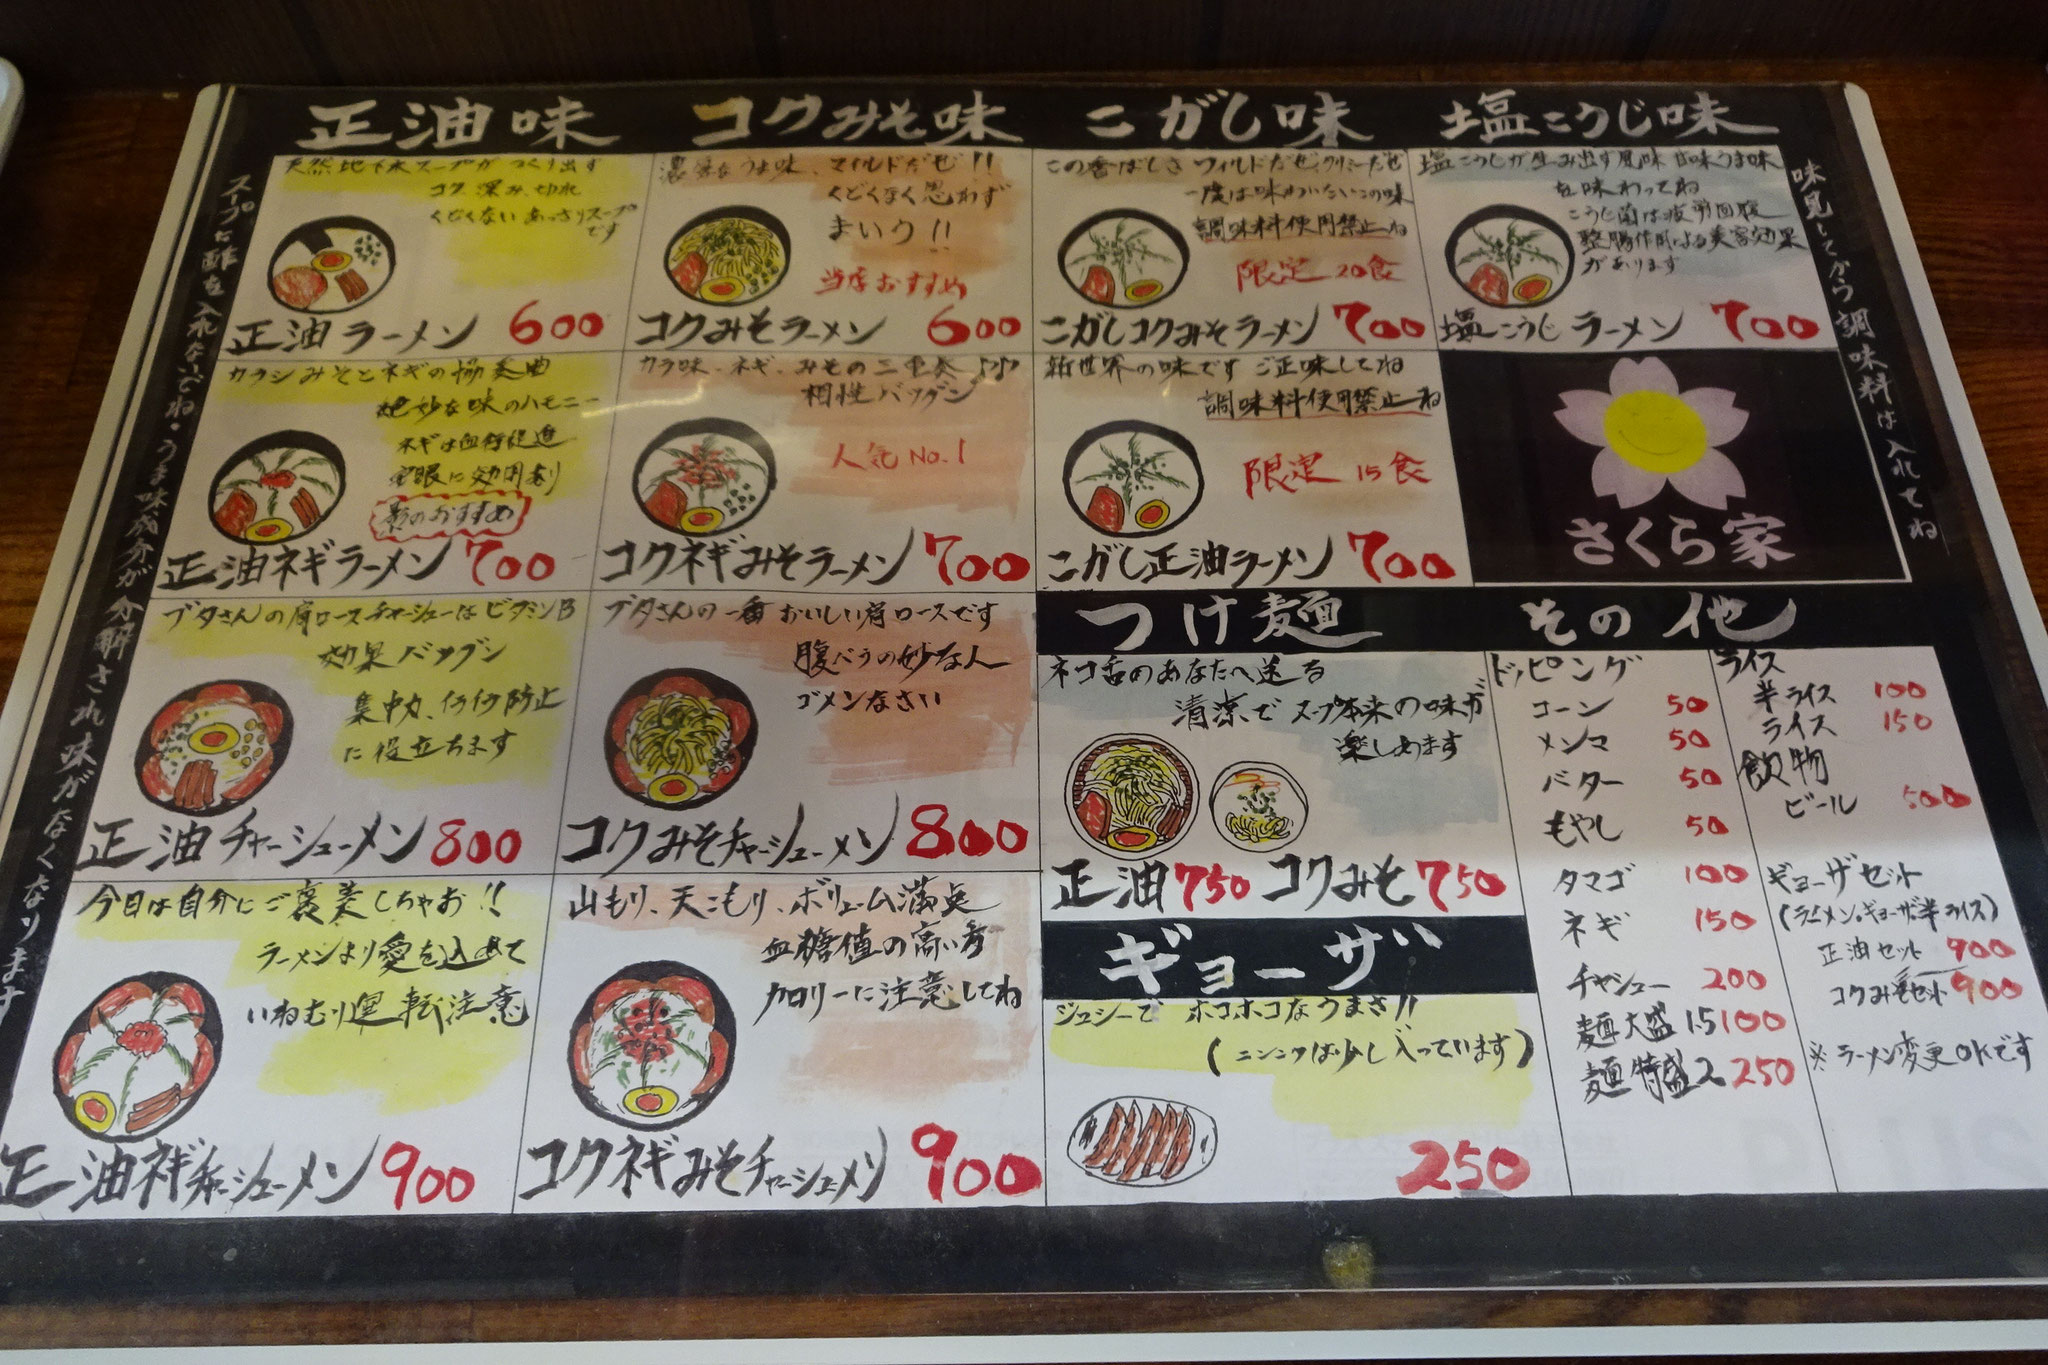 正油味 コクみそ味 こがし味 塩こうじ味
スープに酢を入れないでね・うま味成分が分解され味がなくなります
味見してから調味料は入れてね
天然地下水スープがつくり出す
コク、深み、切れ
くどくない あっさりスープ
です
正油ラーメン 600
濃厚なうま味、マイルドだぜ!!
くどくなく思わず
まいう!!
当店おすすめ
コクみそラーメン 600
この香ばしさ ワイルドだぜ、クリーミーだぜ
一度は味わいたいこの味
調味料使用禁止ね
限定 20食
こがしコクみそラーメン 700
塩こうじが生み出す風味 甘味うま味
を味わってね
こうじ菌は疲労回復
整腸作用による美容効果
があります
塩こうじラーメン 700
カラシみそとネギの協奏曲
絶妙な味のハモニー
ネギは血行促進
安眠に効用あり
影のおすすめ
正油ネギラーメン 700
カラ味、ネギ、みその三重奏♪♪
相性バツグン
人気No.1
コクネギみそラーメン 700
新世界の味です ご正味してね
調味料使用禁止ね
限定 15食
こがし正油ラーメン 700
さくら家
ブタさんの肩ロースチャーシューはビタミンB
効果バツグン
集中力、イライラ防止
に役立ちます
正油チャーシューメン 800
ブタさんの一番おいしい肩ロースです
腹ベラの妙な人
ゴメンなさい
コクみそチャーシューメン 800
今日は自分にご褒美しちゃお!!
ラーメンより愛を込めて
いねむり運転注意
正油ネギチャーシューメン 900
山もり、天こもり、ボリューム満点
血糖値の高い方
カロリーに注意してね
コクネギみそチャーシューメン 900
つけ麺 その他
ネコ舌のあなたへ送る
清涼でスープ本来の味が
楽しめます
正油 750 コクみそ 750
ギョーザ
ジューシーで ホコホコなうまさ!!
(ニンニクは少し入っています)
250
トッピング
コーン 50
メンマ 50
バター 50
もやし 50
タマゴ 100
ネギ 150
チャーシュー 200
麺大盛1.5 100
麺特盛2 250
ライス
半ライス 100
ライス 150
飲物
ビール 500
ギョーザセット
(ラーメン。ギョーザ。半ライス)
正油セット 900
コクみそセット 900
※ラーメン変更OKです